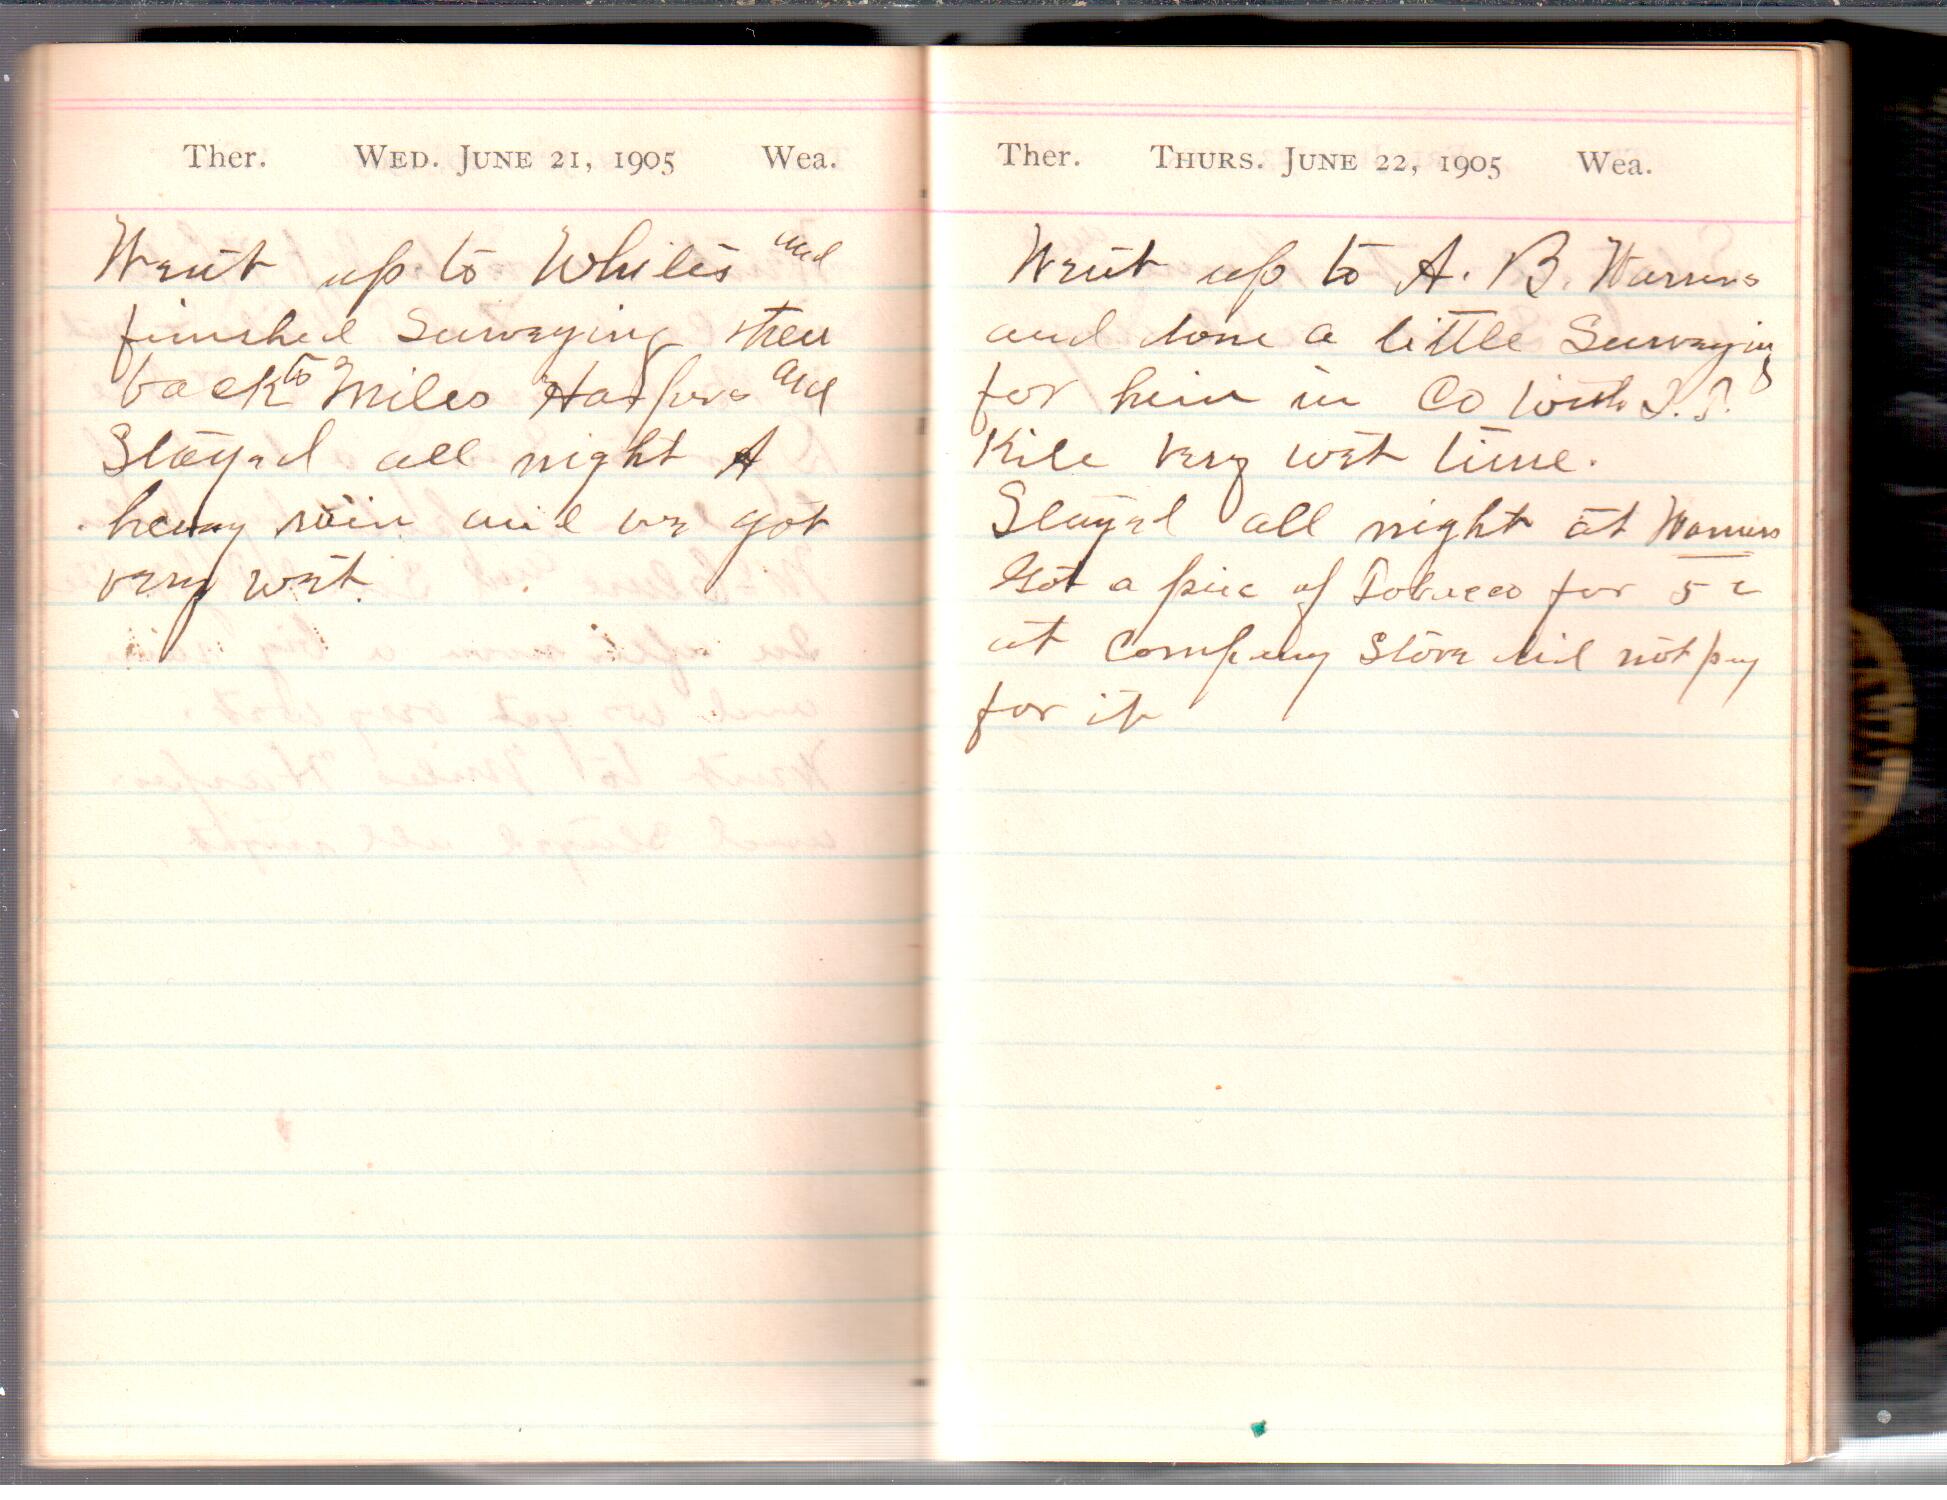 Ther. WED. JUNE 21, 1905 Wea.
Went up to Whites and
finished Surveying then
back to Miles and
Stayed all night A
heavy rain and we got
very wet.
Ther. THURS. JUNE 22, 1905 Wea.
Went up to A. B. Warners
and done a little Surveying
for him in Co with
Kile very wet time.
Stayed all night at Warners
Got a piece of Tobacco for 5 c
at Company Store did not pay
for it